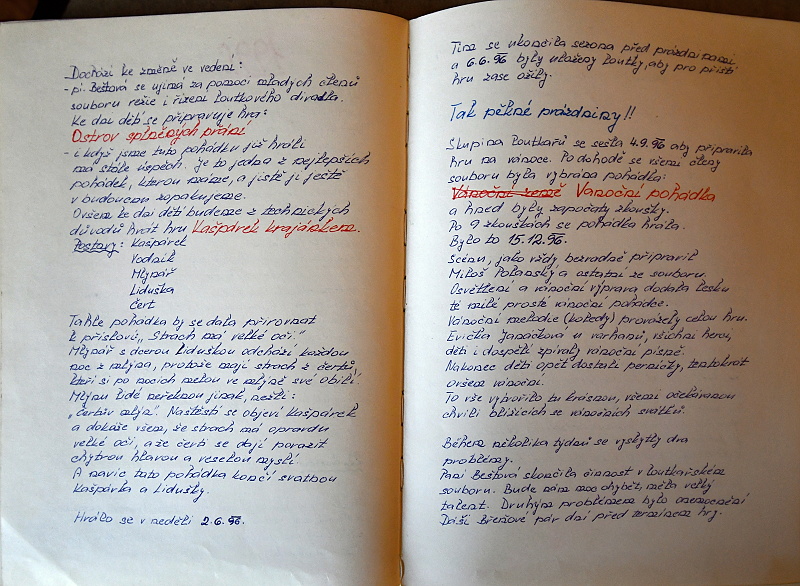 Dochází ke změně ve vedení:
- pí. Beštová se ujímá za pomoci mladých členů
souboru režie i řízení loutkového divadla.
Ke dni dětí se připravuje hra:
Ostrov splněných přání
- i když jsme tuto pohádku již hráli
má stále úspěch. Je to jedna z nejlepších
pohádek, kterou máme, a jistě ji ještě
v budoucnu zopakujeme.
Ovšem ke dni dětí budeme z technických
důvodů hrát hru Kašpárek krajánkem.
Postavy: Kašpárek
Vodník
Mlynář
Liduška
Čert
Tahle pohádka by se dala přirovnat
k přísloví, "Strach má velké oči."
Mlynář s dcerou Liduškou odchází každou
noc z mlýna, protože mají strach z čertů,
kteří si po nocích melou ve mlýně své obilí.
Mlýnu lidé neřeknou jinak, nežli:
"čertův mlýn". Naštěstí se objeví Kašpárek
a dokáže všem, že strach má opravdu
velké oči, a že čerti se dají porazit
chytrou hlavou a veselou myslí.
A navíc tato pohádka končí svatbou
Kašpárka a Lidušky.
Hrálo se v neděli 2.6.96.
Tím se ukončila sezona před prázdninami
a 6.6.96 byly uloženy loutky, aby pro příští
hru zase ožily.
Tak pěkné prázdniny!!
Skupina loutkařů se sešla 4.9.96 aby připravila
hru na vánoce. Po dohodě se všemi členy
souboru byla vybrána pohádka:
Vánoční země Vánoční pohádka
a hned byly započaty zkoušky.
Po 9 zkouškách se pohádka hrála.
Bylo to 15.12.96.
Scénu, jako vždy bezvadně připravil
Miloš Polanský a ostatní ze souboru.
Osvětlení a vánoční výprava dodala lesku
té milé prosté vánoční pohádce.
Vánoční melodie (koledy) provázely celou hru.
Evička Japačková u varhanů, všichni herci,
děti i dospělí zpívaly vánoční písně.
Nakonec děti opět dostali perníčky, tentokrát
ovšem vánoční.
To vše vytvořilo tu krásnou, všemi očekávanou
chvíli blížících se vánočních svátků.
Během několika týdnů se vyskytly dva
problémy.
Paní Beštová skončila činnost v loutkářském
souboru. Bude nám moc chybět, měla velký
talent. Druhým problémem bylo onemocnění
Dáši Břeňové pár dní před termínem hry.